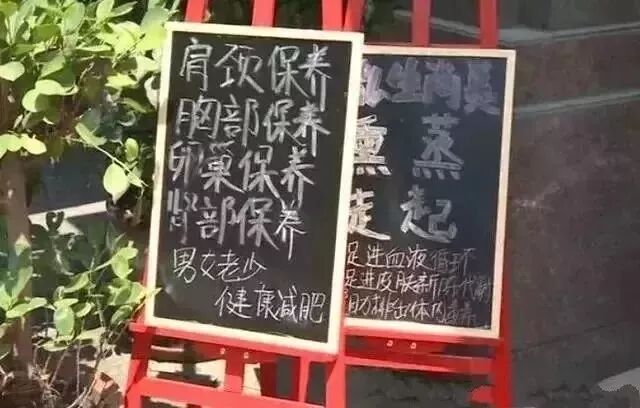 肩颈保养
胸部保养
卵巢保养
肾部保养
男女老少
健康减肥
生尚
熏蒸
起
促进血液循环
促进皮肤新陈代谢
助力排出体内毒素